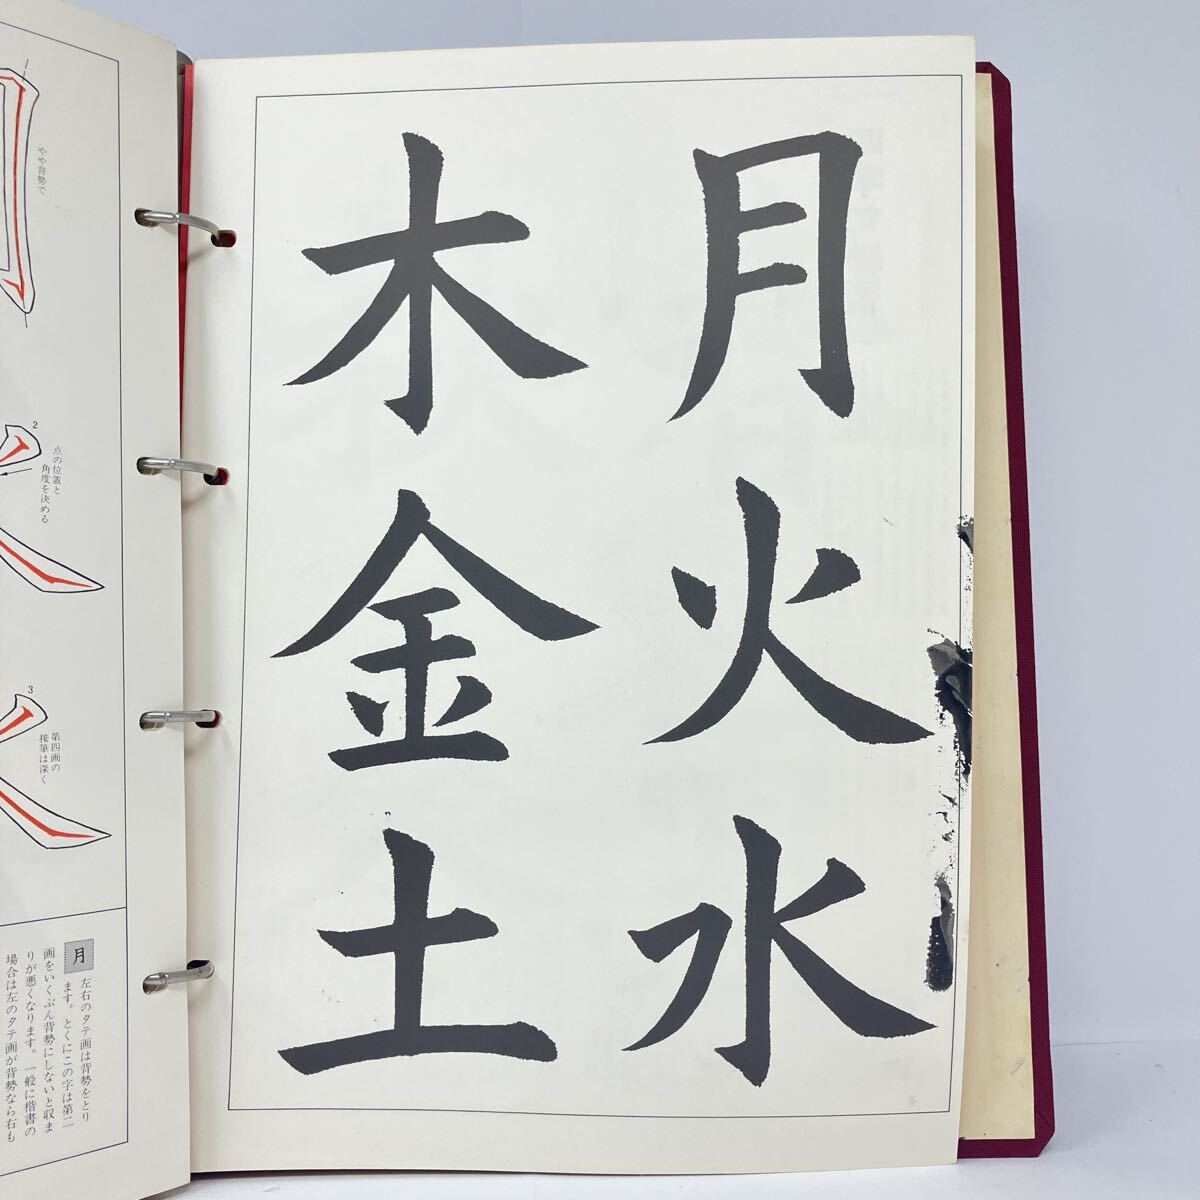 月火水
木金土
やや背勢で
2
点の位置と
角度を決める
3
第四画の
接筆は深く
月
左右のタテ画は背勢をとり
ます。とくにこの字は第二
画をいくぶん背勢にしないと収ま
りが悪くなります。一般に楷書の
場合は左のタテ画が背勢なら右も